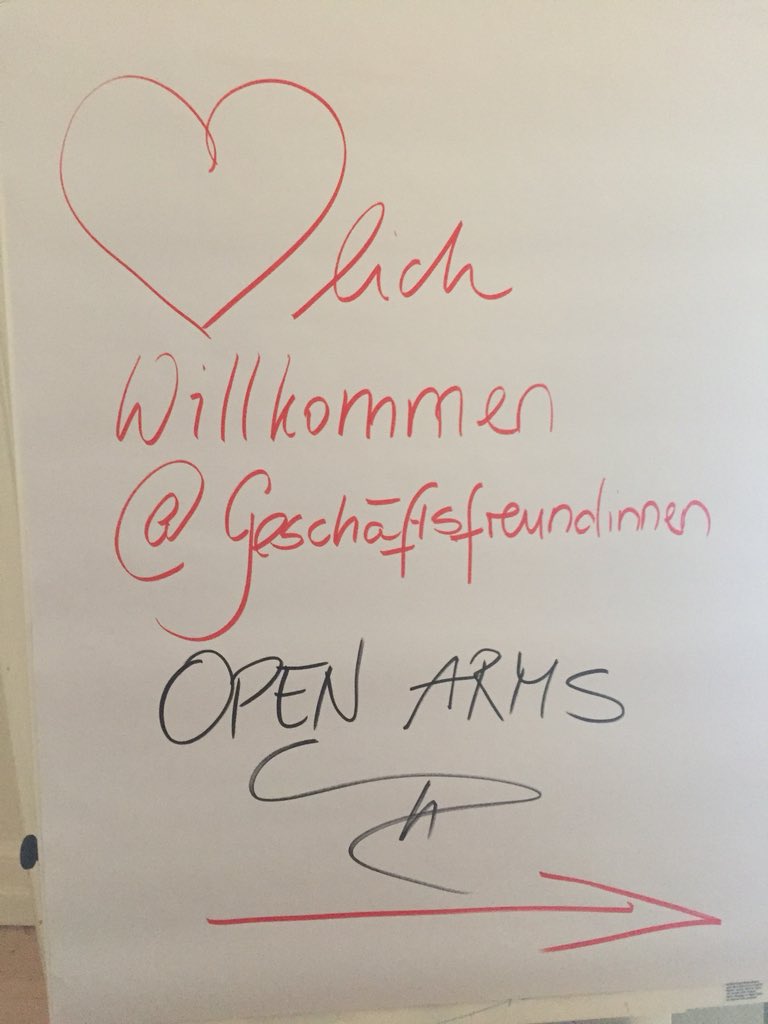 lich
Willkommen
@ Geschäftsfreundinnen
OPEN ARMS